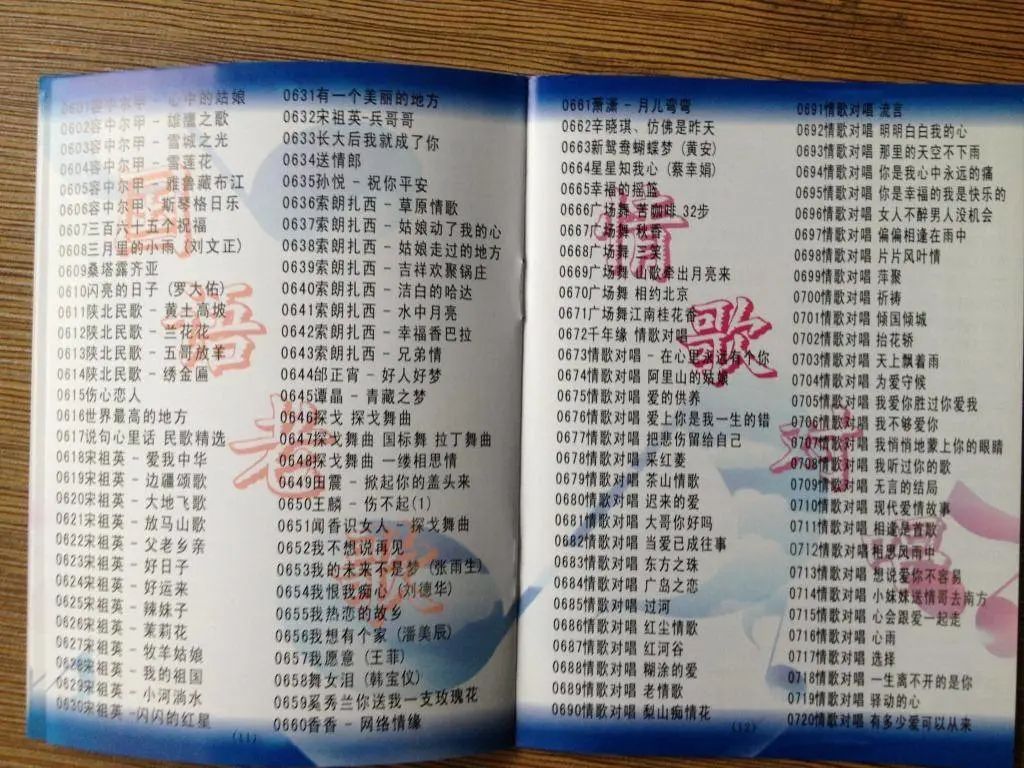 0601容中尔甲 - 心中的姑娘
0602容中尔甲 - 雄鹰之歌
0603容中尔甲 - 雪城之光
0604容中尔甲 - 雪莲花
0605容中尔甲 - 雅鲁藏布江
0606容中尔甲 - 斯琴格日乐
0607三百六十五个祝福
0608三月里的小雨 (刘文正)
0609桑塔露齐亚
0610闪亮的日子 (罗大佑)
0611陕北民歌 - 黄土高坡
0612陕北民歌 - 兰花花
0613陕北民歌 - 五哥放羊
0614陕北民歌 - 绣金匾
0615伤心恋人
0616世界最高的地方
0617说句心里话 民歌精选
0618宋祖英 - 爱我中华
0619宋祖英 - 边疆颂歌
0620宋祖英 - 大地飞歌
0621宋祖英 - 放马山歌
0622宋祖英 - 父老乡亲
0623宋祖英 - 好日子
0624宋祖英 - 好运来
0625宋祖英 - 辣妹子
0626宋祖英 - 茉莉花
0627宋祖英 - 牧羊姑娘
0628宋祖英 - 我的祖国
0629宋祖英 - 小河淌水
0630宋祖英 -闪闪的红星
(11)
0631有一个美丽的地方
0632宋祖英-兵哥哥
0633长大后我就成了你
0634送情郎
0635孙悦 - 祝你平安
0636索朗扎西 - 草原情歌
0637索朗扎西 - 姑娘动了我的心
0638索朗扎西 - 姑娘走过的地方
0639索朗扎西 - 吉祥欢聚锅庄
0640索朗扎西 - 洁白的哈达
0641索朗扎西 - 水中月亮
0642索朗扎西 - 幸福香巴拉
0643索朗扎西 - 兄弟情
0644邰正宵 - 好人好梦
0645谭晶 - 青藏之梦
0646探戈 探戈舞曲
0647探戈舞曲 国标舞 拉丁舞曲
0648探戈舞曲 一缕相思情
0649田震 - 掀起你的盖头来
0650王麟 - 伤不起(1)
0651闻香识女人 - 探戈舞曲
0652我不想说再见
0653我的未来不是梦 (张雨生)
0654我恨我痴心 (刘德华)
0655我热恋的故乡
0656我想有个家 (潘美辰)
0657我愿意 (王菲)
0658舞女泪 (韩宝仪)
0659奚秀兰你送我一支玫瑰花
0660香香 - 网络情缘
国语老歌
0661萧潇 - 月儿弯弯
0662辛晓琪、仿佛是昨天
0663新鸳鸯蝴蝶梦 (黄安)
0664星星知我心 (蔡幸娟)
0665幸福的摇篮
0666广场舞 苦咖啡 32步
0667广场舞 秋香
0668广场舞 三笑
0669广场舞 山歌牵出月亮来
0670广场舞 相约北京
0671广场舞江南桂花香
0672千年缘 情歌对唱
0673情歌对唱 - 在心里永远有个你
0674情歌对唱 阿里山的姑娘
0675情歌对唱 爱的供养
0676情歌对唱 爱上你是我一生的错
0677情歌对唱 把悲伤留给自己
0678情歌对唱 采红菱
0679情歌对唱 茶山情歌
0680情歌对唱 迟来的爱
0681情歌对唱 大哥你好吗
0682情歌对唱 当爱已成往事
0683情歌对唱 东方之珠
0684情歌对唱 广岛之恋
0685情歌对唱 过河
0686情歌对唱 红尘情歌
0687情歌对唱 红河谷
0688情歌对唱 糊涂的爱
0689情歌对唱 老情歌
0690情歌对唱 梨山痴情花
(12)
0691情歌对唱 流言
0692情歌对唱 明明白白我的心
0693情歌对唱 那里的天空不下雨
0694情歌对唱 你是我心中永远的痛
0695情歌对唱 你是幸福的我是快乐的
0696情歌对唱 女人不醉男人没机会
0697情歌对唱 偏偏相逢在雨中
0698情歌对唱 片片风叶情
0699情歌对唱 萍聚
0700情歌对唱 祈祷
0701情歌对唱 倾国倾城
0702情歌对唱 抬花轿
0703情歌对唱 天上飘着雨
0704情歌对唱 为爱守候
0705情歌对唱 我爱你胜过你爱我
0706情歌对唱 我不够爱你
0707情歌对唱 我悄悄地蒙上你的眼睛
0708情歌对唱 我听过你的歌
0709情歌对唱 无言的结局
0710情歌对唱 现代爱情故事
0711情歌对唱 相逢是首歌
0712情歌对唱 相思风雨中
0713情歌对唱 想说爱你不容易
0714情歌对唱 小妹妹送情哥去南方
0715情歌对唱 心会跟爱一起走
0716情歌对唱 心雨
0717情歌对唱 选择
0718情歌对唱 一生离不开的是你
0719情歌对唱 驿动的心
0720情歌对唱 有多少爱可以从来
情歌对唱